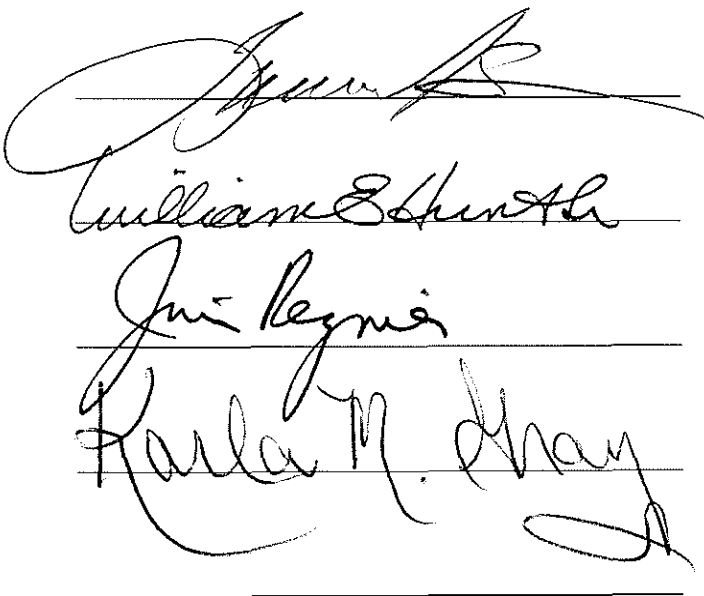 William E Hunter
Jim Regnier
Karla M. Gray